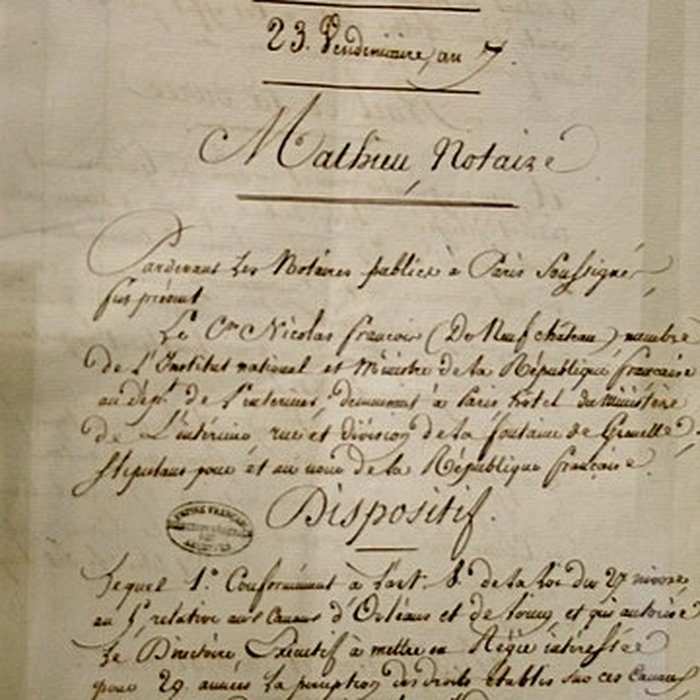 23. Vendémiaire, an 7.
Mathieu, Notaire
Pardevant Les Notaires publics à Paris Soussignés
fut présent
Le Cen Nicolas francois (De Neufchâteau) membre
De L'Institut national et Ministre de la République française
au dépt. de L'intérieur, demeurant à Paris hôtel du ministère
De L'intérieur, rue et division de la fontaine de Grenelle,
Stipulant pour et au nom de la République française.
Dispositif.
EMPIRE FRANÇAIS
ARCHIVES
Lequel 1° Conformément à L'art. 8. de la Loi du 27 nivose
an 5. relative aux Canaux d'Orléans et de Loing, et qui autorise
Le Directoire Exécutif à mettre en Régie intéressée
pour 29. années La perception des droits établis sur ces Canaux